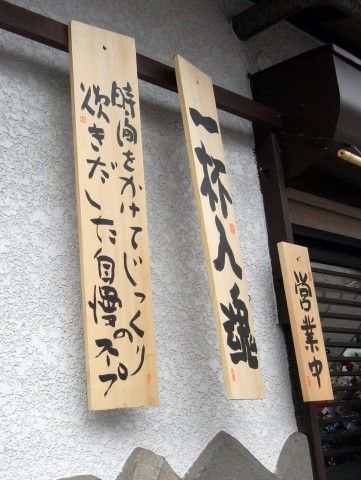 時間をかけてじっくり
炊きだした自慢の
スープ
一杯入魂
営業中